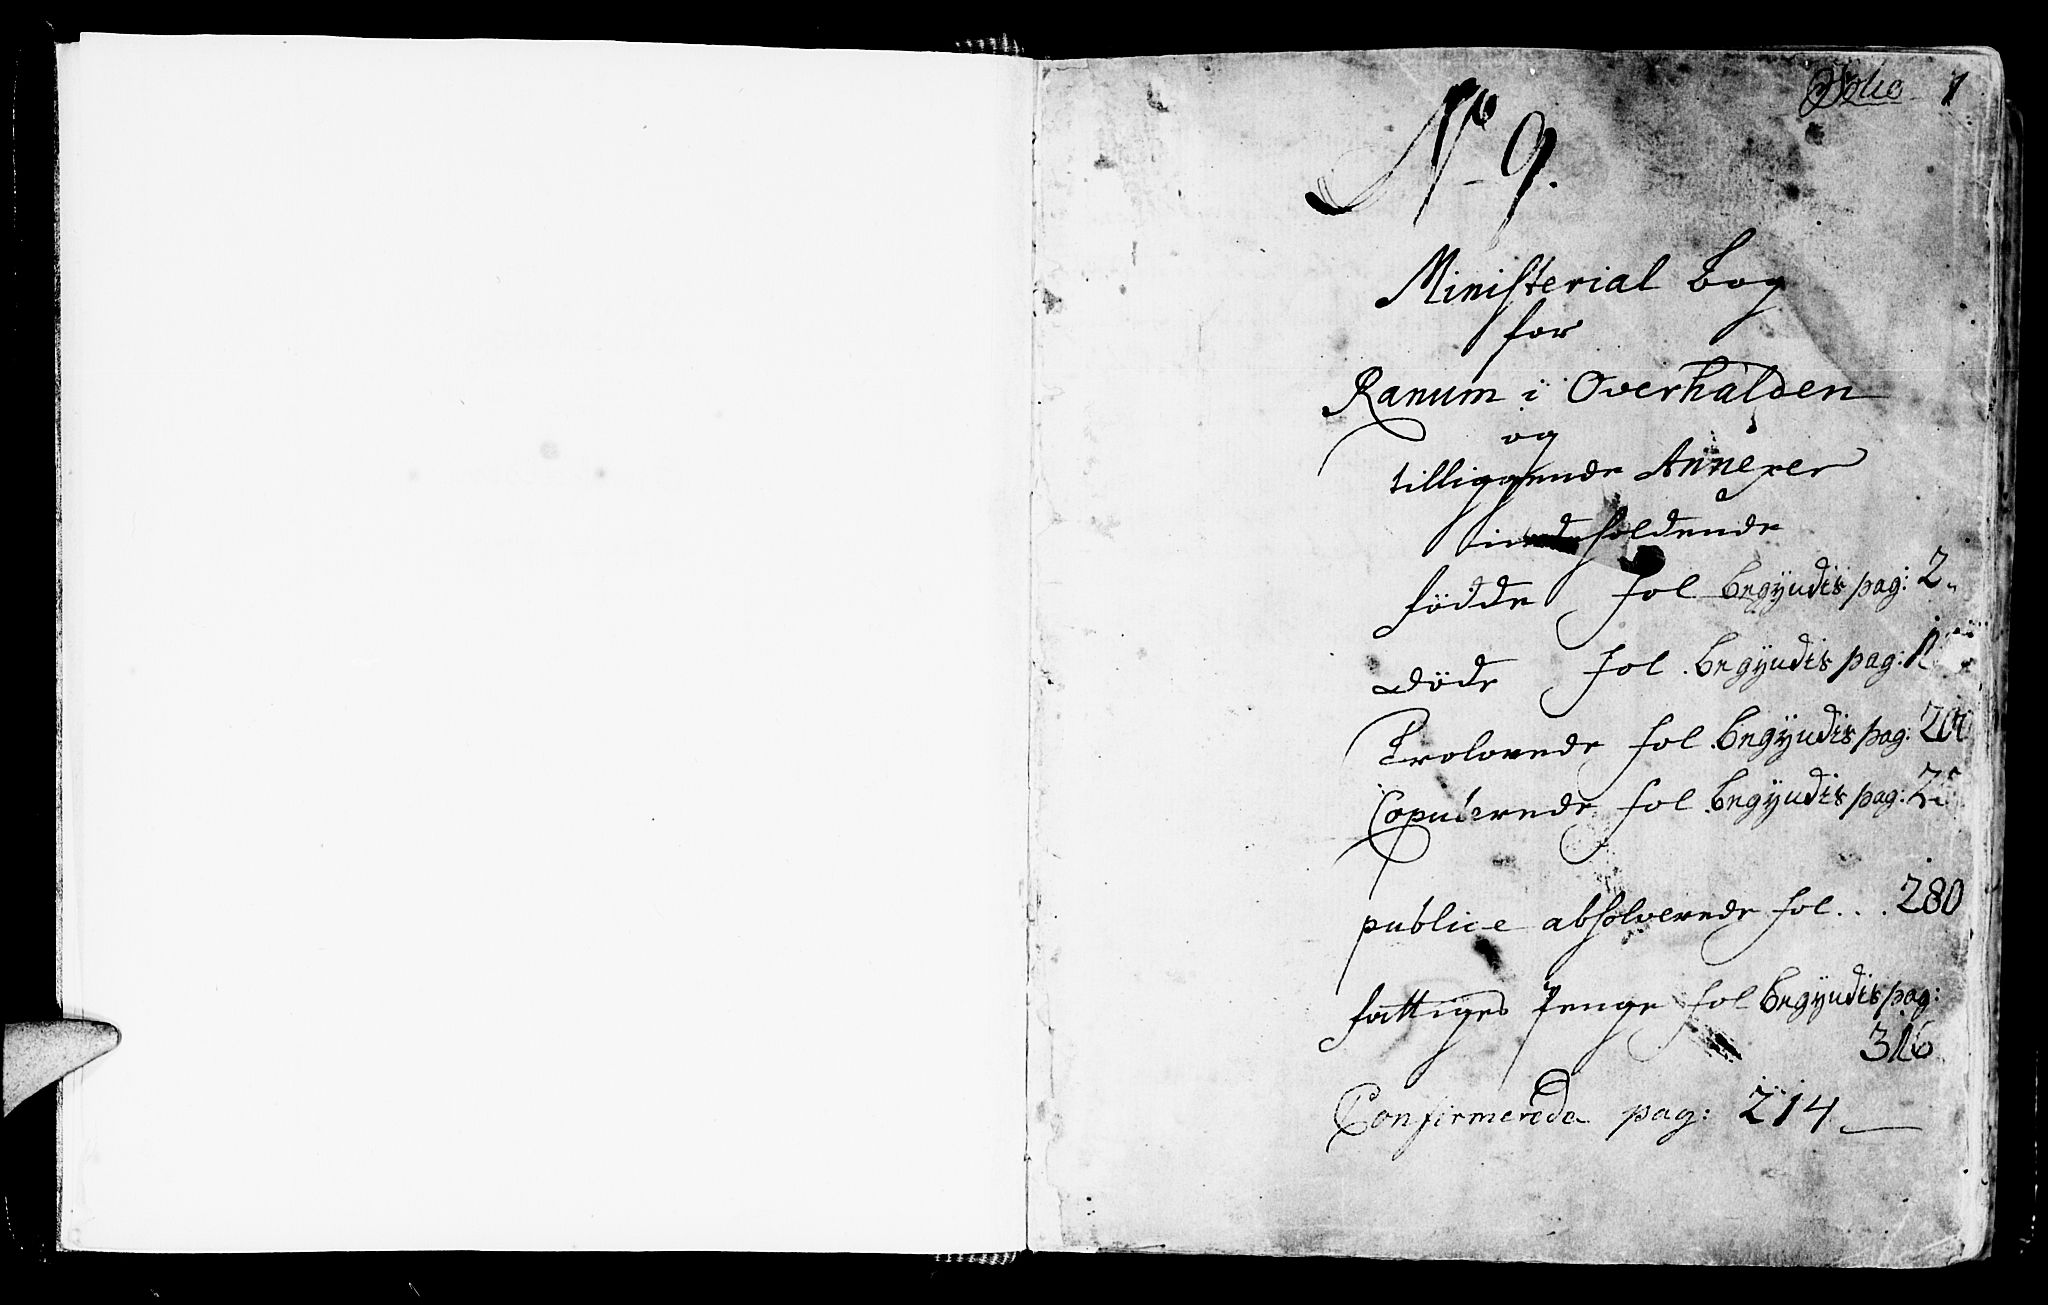 Folio 1
No 9.
Ministerial Bog
for
Ranum i Overhalden
og
tilliggende Annexer
indeholdende
födde fol begÿndis pag: 2
döde fol begÿndis pag:
Trolovede fol begÿndis pag:
Copulerede fol begÿndis pag:
publice absolverede fol . . . 280
fattiges Penge fol begÿndis pag:
316
Confirmerede pag: 214